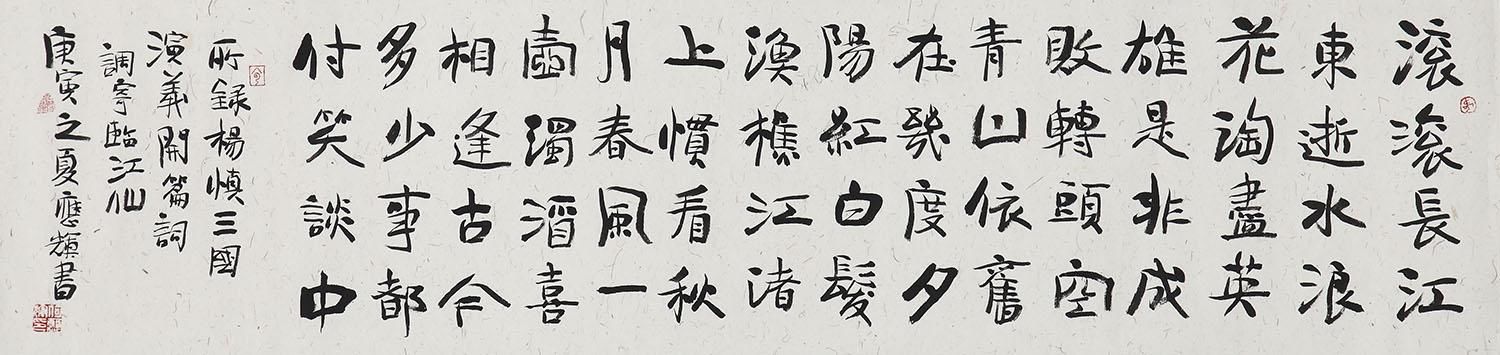 滾滾長江
東逝水浪
花淘盡英
雄是非成
敗轉頭空
青山依舊
在幾度夕
陽紅白髮
漁樵江渚
上慣看秋
月春風一
壺濁酒喜
相逢古今
多少事都
付笑談中
所錄楊慎三國
演義開篇詞
調寄臨江仙
庚寅之夏應輝書